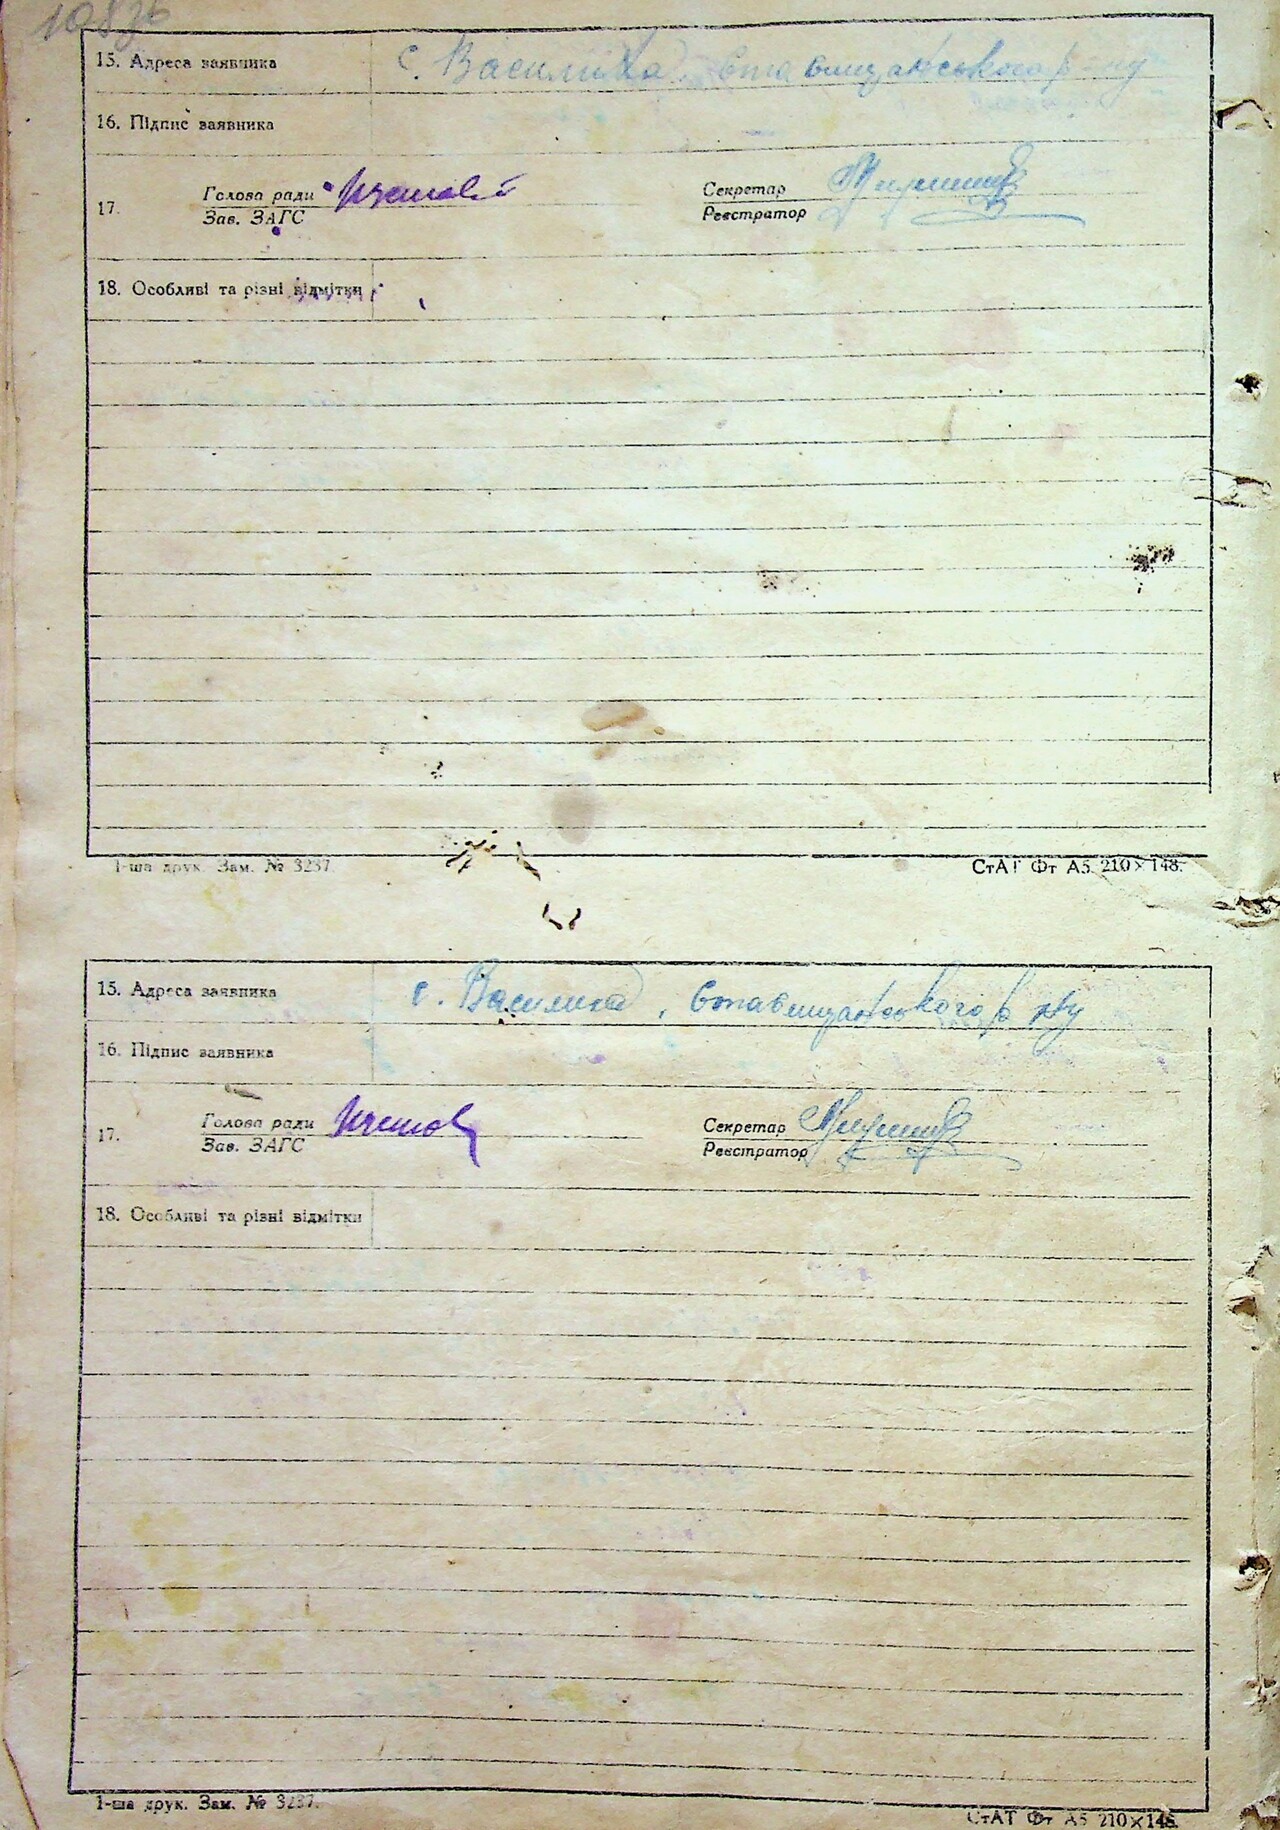 15. Адреса заявника с. Василиха, Ставищанського р-ну
16. Підпис заявника
17. Голова ради Секретар
Зав. ЗАГС Реєстратор
18. Особливі та різні відмітки
1-ша друк. Зам. № 3237. СтАТ Фт А5. 210×148.
15. Адреса заявника с. Василиха, Ставищанського р-ну
16. Підпис заявника
17. Голова ради Секретар
Зав. ЗАГС Реєстратор
18. Особливі та різні відмітки
1-ша друк. Зам. № 3237. СтАТ Фт А5 210×148.